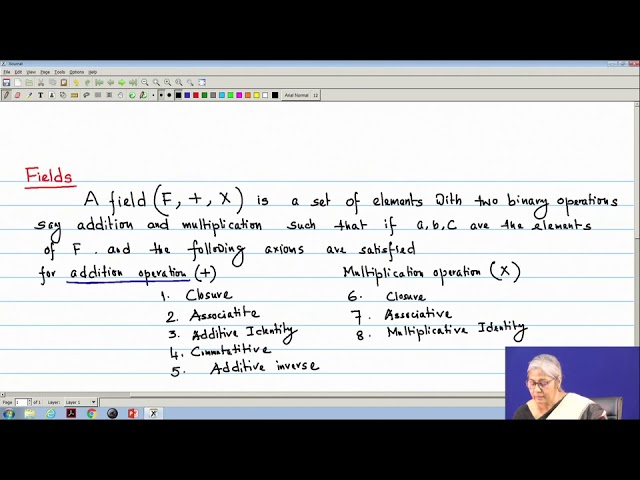 Journal
File Edit View Page Tools Options Help
Arial Normal 12
Fields
A field (F, +, X) is a set of elements With two binary operations
say addition and multiplication such that if a,b,c are the elements
of F. and the following axioms are satisfied
for addition operation (+)
1. Closure
2. Associatite
3. Additive Identity
4. Commutitive
5. Additive inverse
Multiplication operation (X)
6. Closure
7. Associative
8. Multiplicative Identity
Page 1 of 1 Layer Layer 1